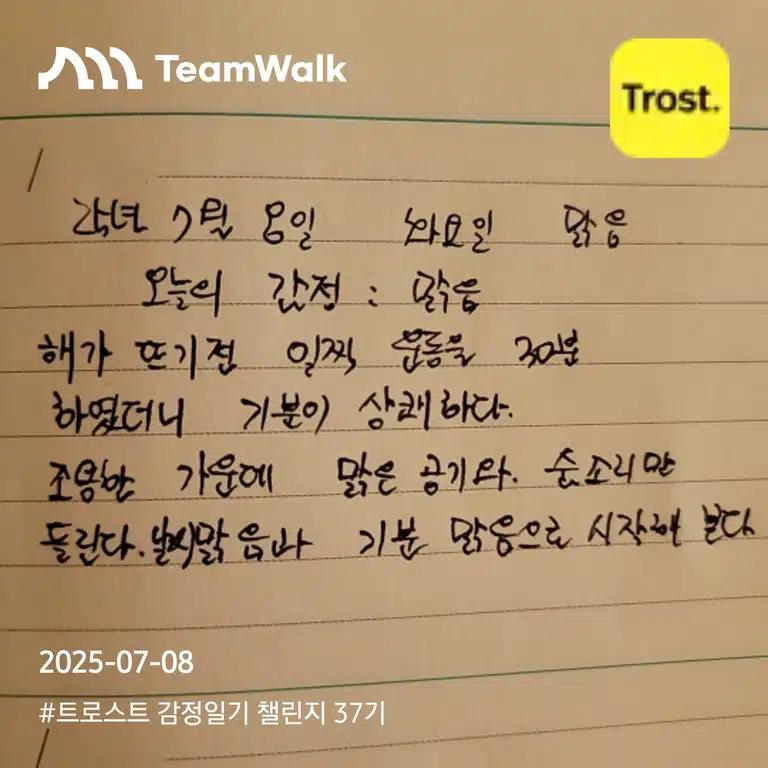 TeamWalk
Trost.
25년 7월 8일 화요일 맑음
오늘의 감정 : 맑음
해가 뜨기전 일찍 운동을 30분
하였더니 기분이 상쾌하다.
조용한 가운데 맑은 공기와. 숨소리만
들린다. 날씨맑음과 기분 맑음으로 시작해 본다
2025-07-08
#트로스트 감정일기 챌린지 37기